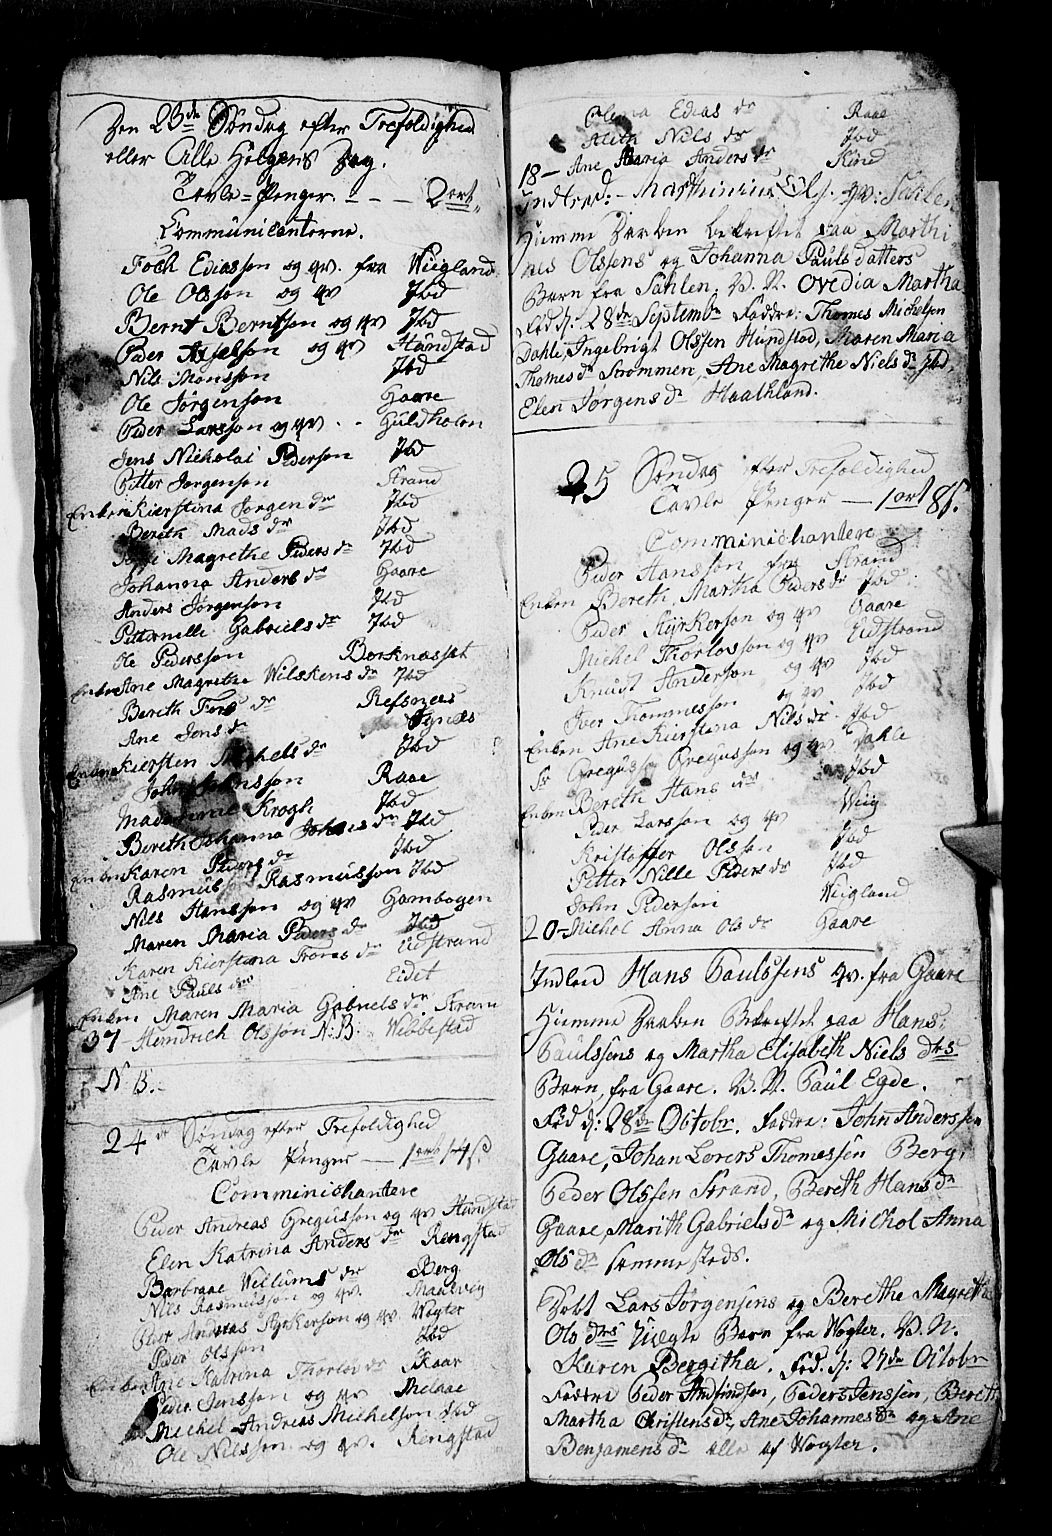 Den 23de Søndag efter Trefoldighed
eller Alle Helgens Dag.
Tavle-Penger. - - - 2 ort.
Communicanterne.
Foch Ediassøn og qv. fra Wiigland
Ole Olssøn og qv Ibd
Bernt Berntsøn og qv Ibd
Peder Axelsøn og qv Hundstad
Nils Monssøn Ibd
Ole Jørgensøn Gaare
Peder Larssøn og qv - - Guldholm
Jens Nickolai Pedersøn Ibd
Pitter Jørgensøn Strand
Enken Kierstina Jørgen dr Ibd
Bereth Mads dr Ibd
Magrethe Peders dr Ibd
Johanna Anders dr Gaare
Anders Jørgensøn Ibd
Petternelle Gabriels dr Ibd
Ole Pederssøn Borknæsset
Enken Ane Magrethe Wilskens dr Ibd
Bereth Fors dr Refsnæs
Ane Jens dr
Enken Kiersten Michels dr Ibd
John Johnssøn Raae
Madamme Krogh Ibd
Bereth Johanna Johans dr Ibd
Enken Karen Peders dr Ibd
Rasmus Rasmussøn Ibd
Nils Hanssøn og qv Gambogen
Maren Maria Peders dr Ibd
Karen Kierstina Trons dr Eidstrand
Ane Pauls dr Eidet
Enken Maren Maria Gabriels dr Stram
37 Hendrich Olssøn N:B: Wibbestad
N B.
24 de Søndag efter Trefoldighed
Tavle Penger — 1 ort 14 s
Comminichantere
Peder Andreas Gregussøn og qv Hundstad
Elen Katrina Anders dr Rengstad
Barbraae Willums dr Berg
Nils Rasmussøn og qv. Maaesvig
Peter Andreas Styrkersøn og qv. Wogter
Peder Olssøn Ibd
Enken Ane Katrina Thorlos dr Skaar
Peder Jenssøn og qv Melaae
Michel Andreas Michelsøn Ibd
Ole Nilssøn og qv. Rengstad
Elena Edias dr Raae
Alith Nils dr Ibd
18 - Ane Maria Anders dr Kind
Indtræd: - Marthinius Ols. qv: Sahlen
Hiemme Daaben bekreftet paa Marthi-
nus Olssens og Johanna Pauls datters
Barn fra Sahlen. V. N. Ovedia Martha
Fød d: 28de Septembr Faddre: Thomes Michelsen
Dahle, Ingebrigt Olssen Hundstad, Maren Maria
Thomes dr Strømmen, Ane Magrethe Niels dr Ibd,
Elen Jørgens dr Haakland.
25 Søndag efter Trefoldighed
Tavle Penger — 1 ort 8 s.
Comminichantere
Peder Hanssøn fra Strand
Enken Bereth Martha Peders dr Ibd
Peder Styrkersøn og qv Gaare
Michel Thorlossøn og qv Eidstrand
Knudt Andersøn og qv Ibd
Iver Tommessøn og qv Ibd
Enken Ane Kierstina Nils dr. Ibd
Sr Gregus Gregussøn og qv Dahle
Enken Bereth Hans dr Ibd
Peder Larssøn og qv Wiig
Kristoffer Olssøn Ibd
Petter Nille Peders dr Ibd
John Pedersøn Wiigland
20 - Michol Anna Ols dr Gaare
Indled Hans Paulssens qv. fra Gaare
Hiemme Daaben Bekreftet paa Hans
Paulssens og Martha Elisabeth Niels dtrs
Barn, fra Gaare. V. N. Paul Egde.
Fød d: 28de Octobr. Faddre: John Anderssen
Gaare, Johan Lorers Thomessen Berg,
Peder Olssen Strand, Bereth Hans dr
Gaare, Marith Gabriels dr og Michol Anna
Ols dr sammesteds.
Døbt Lars Jørgensens og Berethe Magrethe
Ols dtrs Uægte Barn fra Wogter. V. N.
Karen Bergitha. Fød. d: 27de Octobr
Faddre Peder Andfindsen, Peders Jenssen, Bereth
Martha Christens dr, Ane Johannes dr og Ane
Benjamens dr alle af Wogter.